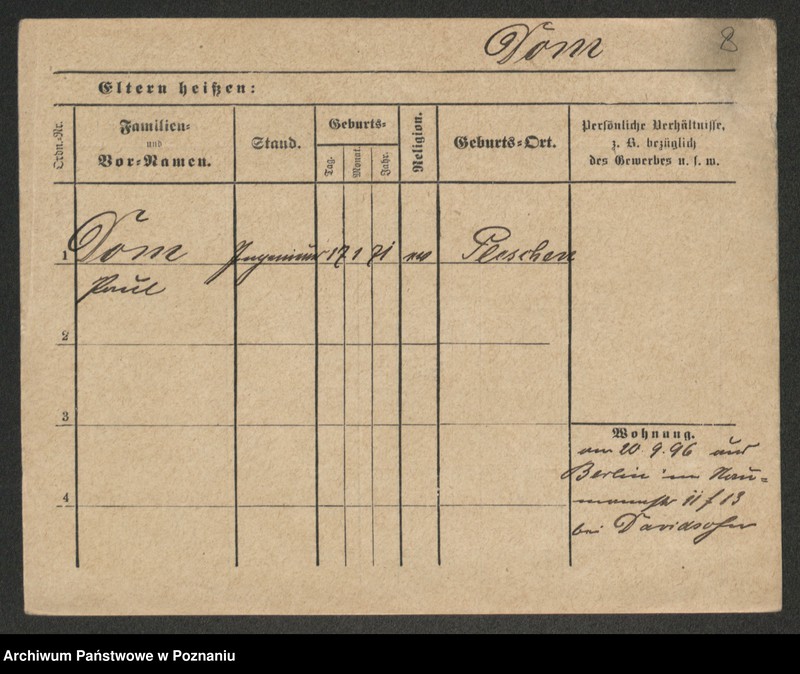 Dom
8
Eltern heißen:
Ordn.-Nr.
Familien-
und
Vor-Namen.
Stand.
Geburts-
Tag.
Monat.
Jahr.
Religion.
Geburts-Ort.
Persönliche Verhältnisse,
z. B. bezüglich
des Gewerbes u. s. w.
1 Dom Ingenieur 17 1 71 Pleschen
Paul
2
3
4
Wohnung.
am 20 9.96 aus
Berlin in Nau=
mannstr 11 f 13
bei Davidsohn
Archiwum Państwowe w Poznaniu